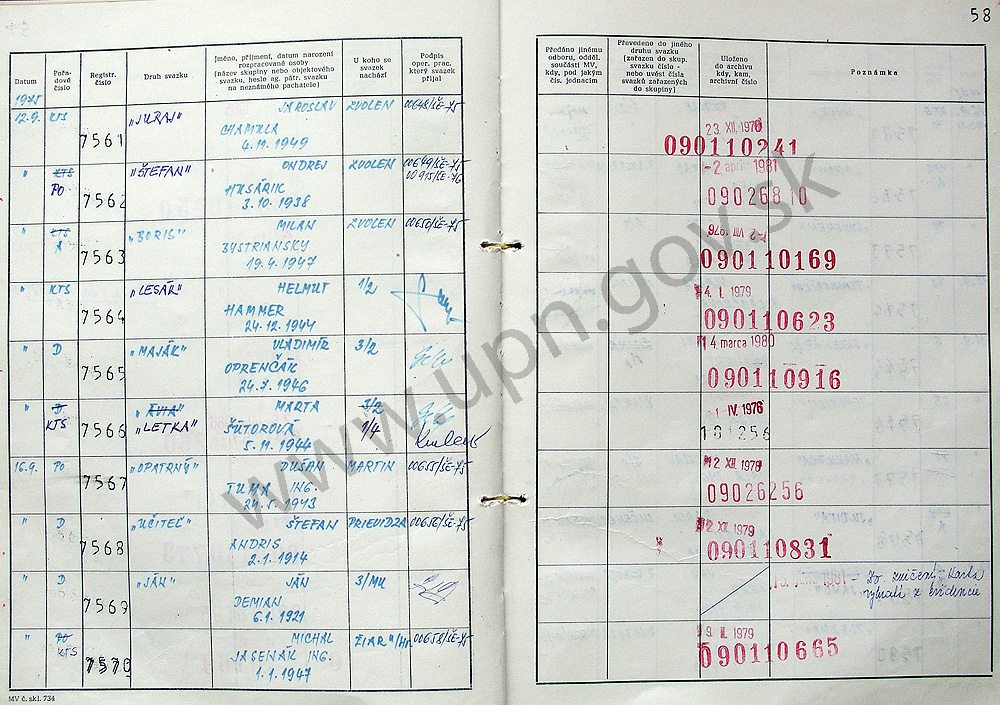 58
Datum
Pořa-
dové
číslo
Registr.
číslo
Druh svazku
Jméno, příjmení, datum narození
rozpracované osoby
(název skupiny nebo objektového
svazku, heslo ag. pátr. svazku
na neznámého pachatele)
U koho se
svazek
nachází
Podpis
oper. prac.
který svazek
přijal
Předáno jinému
odboru, odděl.
součásti MV,
kdy, pod jakým
čís. jednacím
Převedeno do jiného
druhu svazku
(zařazen do skup.
svazku číslo -
nebo uvést čísla
svazků zařazených
do skupiny)
Uloženo
do archivu
kdy, kam,
archivní číslo
Poznámka
1975
12.9. KTS 7561 „JURAJ" JAROSLAV ZVOLEN 00648/ŠE-75
CHAMULA
4.11.1949
23. XII. 1976
090110241
" KTS 7562 „ŠTEFAN" ONDREJ ZVOLEN 00649/ŠE-75
PO HUSÁRIK 00915/ŠE-76
3.10.1938
-2. apríla 1981
09026810
" KTS 7563 „BORIS" MILAN ZVOLEN 00650/ŠE-75
A BYSTRIANSKY
19.4.1947
VII. 1976
090110169
" KTS 7564 „LESÁR" HELMUT 1/2
HAMMER
24.12.1944
4. I. 1979
090110623
" D 7565 „MAJÁK" VLADIMÍR 3/2
OPRENČÁK
24.7.1946
14 marca 1980
090110916
" D 7566 „ÁVIA" MARTA 3/2
KTS „LETKA" ŠÚTOROVÁ 1/4
5.11.1944
IV. 1976
181256
16.9. PO 7567 „OPATRNÝ" DUŠAN MARTIN 00655/ŠE-75
TUMA ING.
24.5.1943
12 XII. 1978
09026256
" D 7568 „UČITEĽ" ŠTEFAN PRIEVIDZA 00656/ŠE-75
ANDRIS
2.1.1914
12 XII. 1979
090110831
" D 7569 „JÁN" JÁN 3/MU
DEMIAN
6.1.1921
1981 - Zv. zničený - karta
vybratá z evidencie
" PO 7570 MICHAL ŽIAR n/Hr. 00658/ŠE-75
KTS JASENÁK ING.
1.1.1947
9. II. 1979
090110665
MV č. skl. 734
www.upn.gov.sk